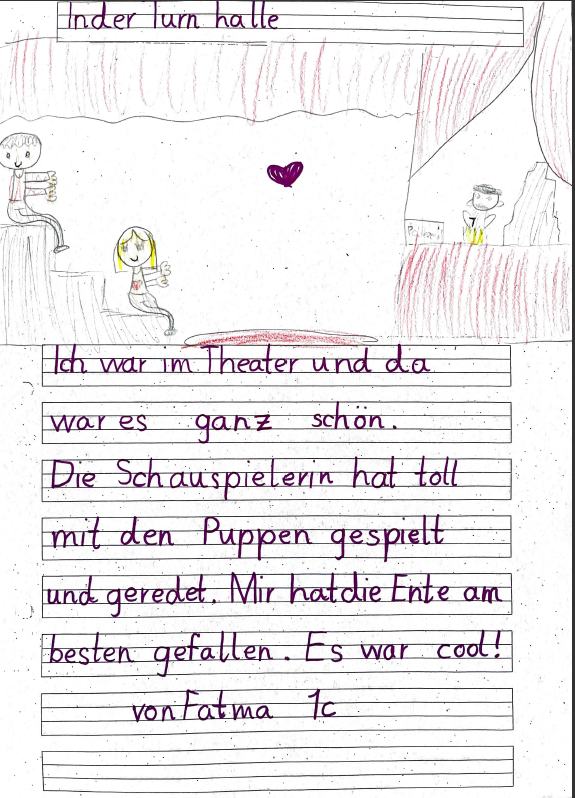 In der Turnhalle
Ich war im Theater und da
war es ganz schön.
Die Schauspielerin hat toll
mit den Puppen gespielt
und geredet. Mir hat die Ente am
besten gefallen. Es war cool!
von Fatma 1c